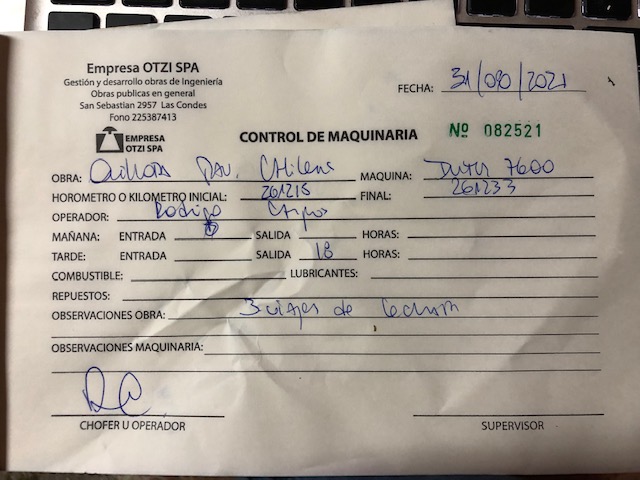 Empresa OTZI SPA
Gestión y desarrollo obras de Ingeniería
Obras publicas en general
San Sebastian 2957 Las Condes
Fono 225387413
FECHA: 31/08/2021
EMPRESA
OTZI SPA
CONTROL DE MAQUINARIA
Nº 082521
OBRA: Chilena MAQUINA: 7600
HOROMETRO O KILOMETRO INICIAL: 261215 FINAL: 261233
OPERADOR: Rodrigo
MAÑANA: ENTRADA 8 SALIDA HORAS:
TARDE: ENTRADA SALIDA 18 HORAS:
COMBUSTIBLE: LUBRICANTES:
REPUESTOS:
OBSERVACIONES OBRA: 3 viajes de
OBSERVACIONES MAQUINARIA:
CHOFER U OPERADOR SUPERVISOR